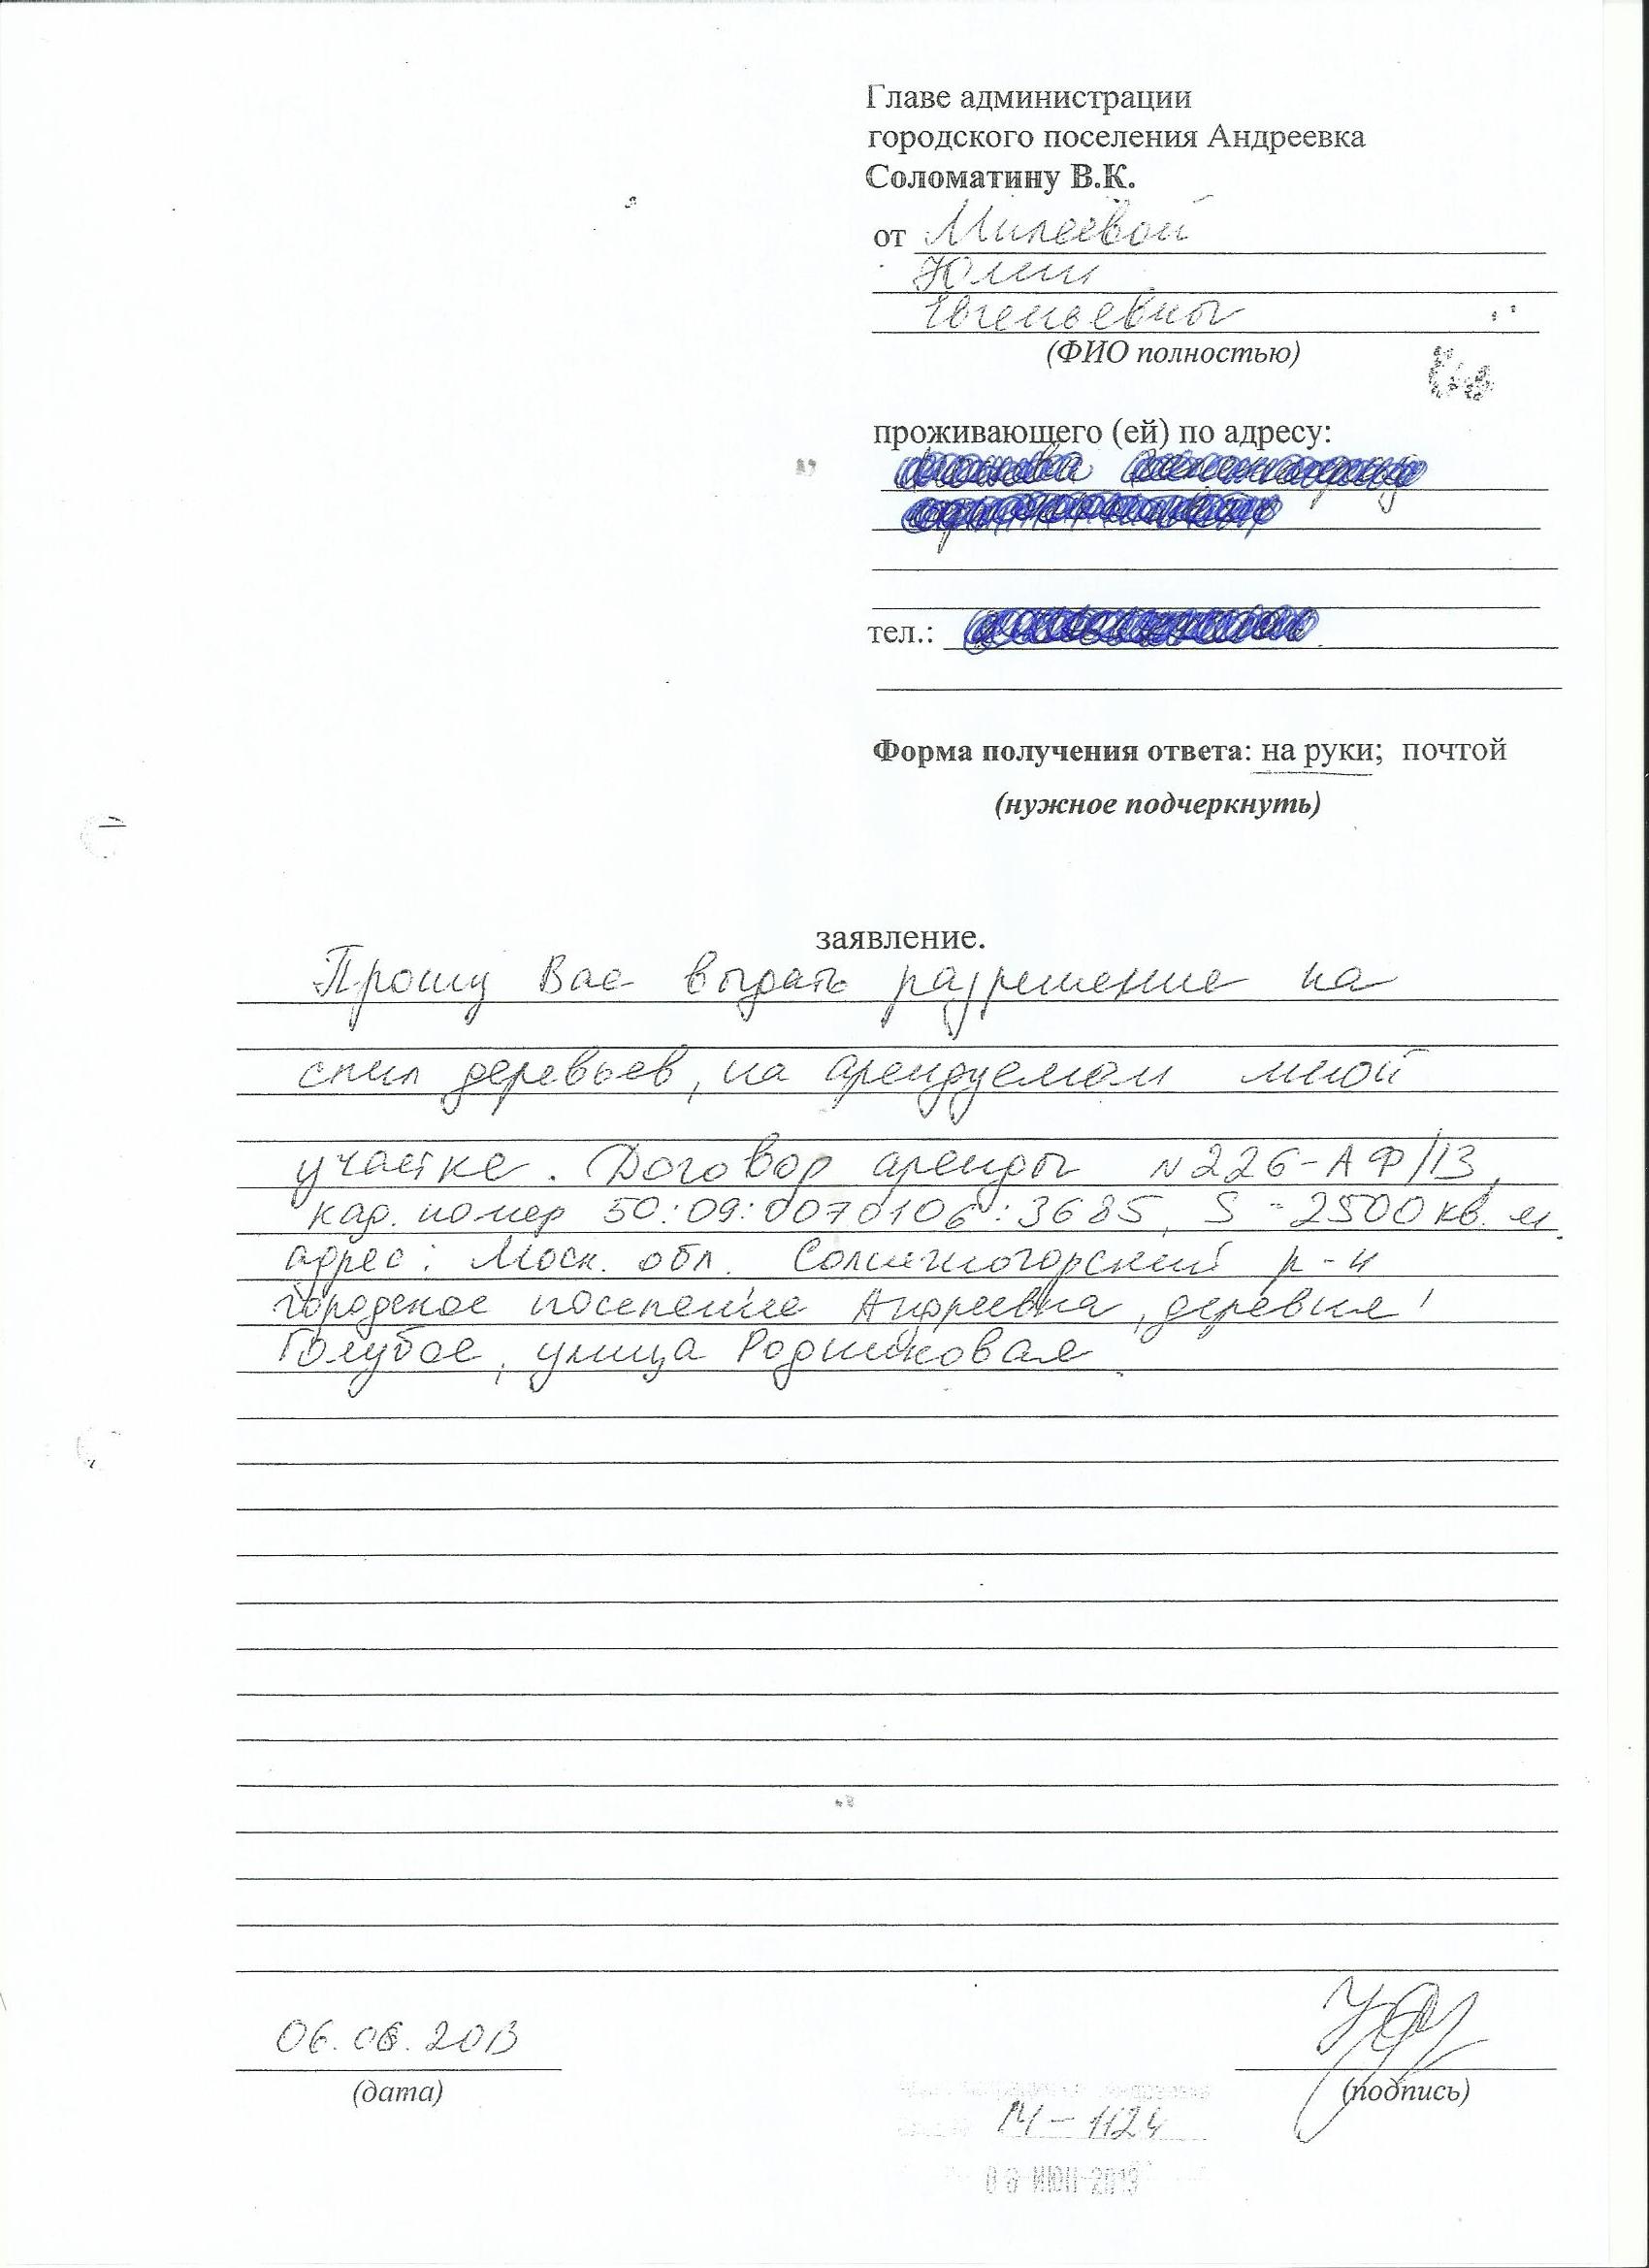 Главе администрации
городского поселения Андреевка
Соломатину В.К.
от Милеевой
Юлии
Евгеньевны
(ФИО полностью)
проживающего (ей) по адресу:
тел.:
Форма получения ответа: на руки; почтой
(нужное подчеркнуть)
заявление.
Прошу Вас выдать разрешение на
спил деревьев, на арендуемом мной
участке. Договор аренды N226-АФ/13,
кад. номер 50:09:0070106:3685, S-2500 кв. м
адрес: Моск. обл. Солнечногорский р-н
городское поселение Андреевка, деревня
Голубое, улица Родниковая
06.06.2013
(дата)
(подпись)
М-1124
06 ИЮН 2013